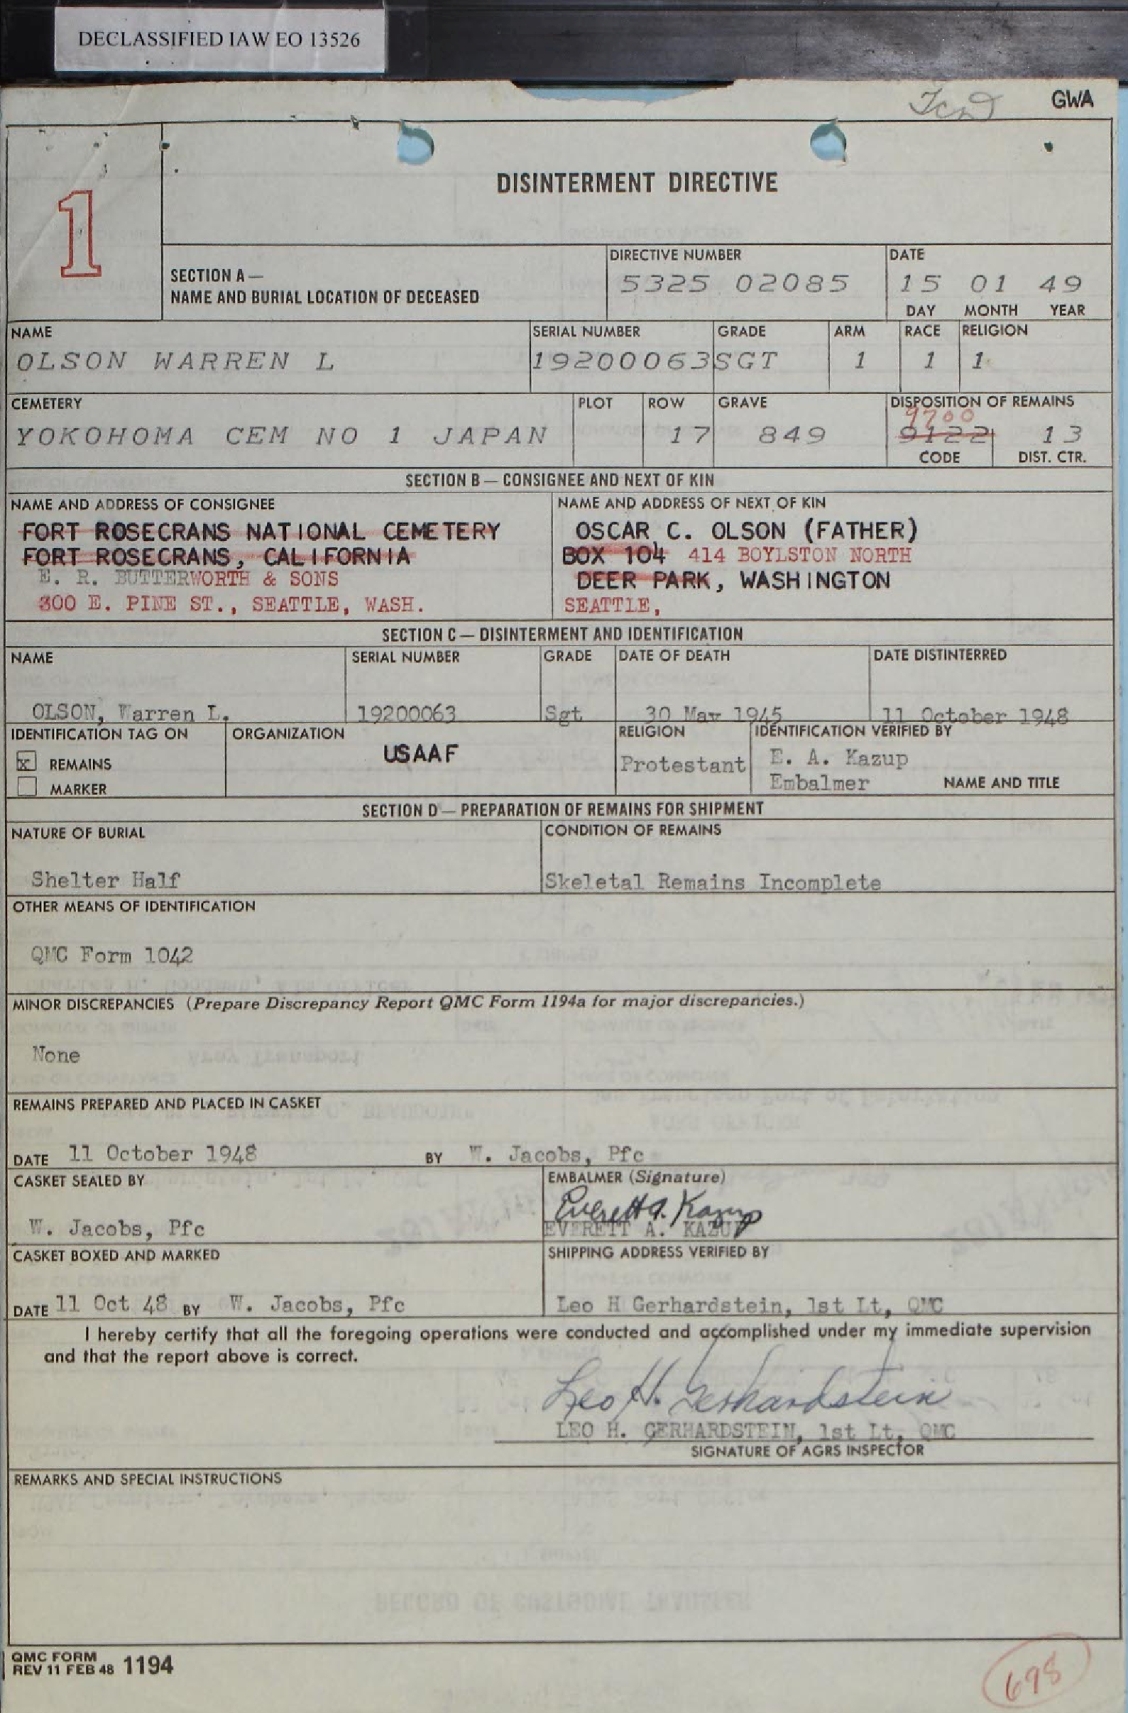 DECLASSIFIED IAW EO 13526
GWA
1
DISINTERMENT DIRECTIVE
SECTION A—
NAME AND BURIAL LOCATION OF DECEASED
DIRECTIVE NUMBER
5325 02085
DATE
15 01 49
DAY MONTH YEAR
NAME
OLSON WARREN L
SERIAL NUMBER
19200063
GRADE
SGT
ARM
1
RACE
1
RELIGION
1
CEMETERY
YOKOHOMA CEM NO 1 JAPAN
PLOT
ROW
17
GRAVE
849
DISPOSITION OF REMAINS
9700
9122 13
CODE DIST. CTR.
SECTION B—CONSIGNEE AND NEXT OF KIN
NAME AND ADDRESS OF CONSIGNEE
FORT ROSECRANS NATIONAL CEMETERY
FORT ROSECRANS, CALIFORNIA
E. R. BUTTERWORTH & SONS
300 E. PINE ST., SEATTLE, WASH.
NAME AND ADDRESS OF NEXT OF KIN
OSCAR C. OLSON (FATHER)
BOX 104 414 BOYLSTON NORTH
DEER PARK, WASHINGTON
SEATTLE,
SECTION C—DISINTERMENT AND IDENTIFICATION
NAME
OLSON, Warren L.
SERIAL NUMBER
19200063
GRADE
Sgt
DATE OF DEATH
30 May 1945
DATE DISTINTERRED
11 October 1948
IDENTIFICATION TAG ON
x REMAINS
MARKER
ORGANIZATION
USAAF
RELIGION
Protestant
IDENTIFICATION VERIFIED BY
E. A. Kazup
Embalmer NAME AND TITLE
SECTION D—PREPARATION OF REMAINS FOR SHIPMENT
NATURE OF BURIAL
Shelter Half
CONDITION OF REMAINS
Skeletal Remains Incomplete
OTHER MEANS OF IDENTIFICATION
QMC Form 1042
MINOR DISCREPANCIES (Prepare Discrepancy Report QMC Form 1194a for major discrepancies.)
None
REMAINS PREPARED AND PLACED IN CASKET
DATE 11 October 1948 BY W. Jacobs, Pfc
CASKET SEALED BY
W. Jacobs, Pfc
EMBALMER (Signature)
Everett A. Kazup
EVERETT A. KAZUP
CASKET BOXED AND MARKED
DATE 11 Oct 48 BY W. Jacobs, Pfc
SHIPPING ADDRESS VERIFIED BY
Leo H Gerhardstein, 1st Lt, QMC
I hereby certify that all the foregoing operations were conducted and accomplished under my immediate supervision
and that the report above is correct.
Leo H. Gerhardstein
LEO H. GERHARDSTEIN, 1st Lt, QMC
SIGNATURE OF AGRS INSPECTOR
REMARKS AND SPECIAL INSTRUCTIONS
QMC FORM
REV 11 FEB 48 1194
698